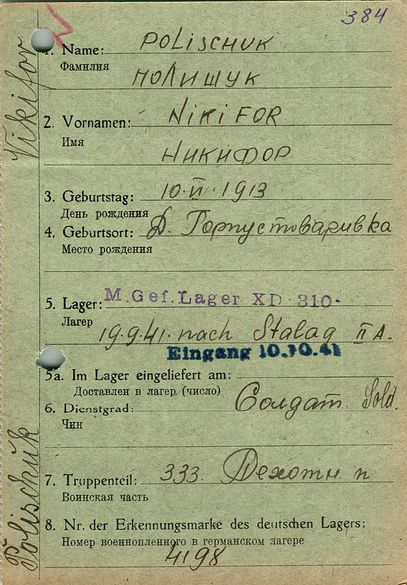 384
1. Name: POLISCHUK
Фамилия ПОЛИЩУК
2. Vornamen: NIKIFOR
Имя
НИКИФОР
3. Geburtstag: 10.VI.1913
День рождения
4. Geburtsort: Д. Горпустоваривка
Место рождения
5. Lager: M.Gef.Lager XD 310-
Лагер 19.9.41. nach Stalag II A.
Eingang 10.10.41
5a. Im Lager eingeliefert am:
Доставлен в лагер (число)
6. Dienstgrad: Солдат. Sold.
Чин
7. Truppenteil: 333. Пехотн. п
Воинская часть
8. Nr. der Erkennungsmarke des deutschen Lagers:
Номер военнопленного в германском лагере
4198
Polischuk
Nikifor